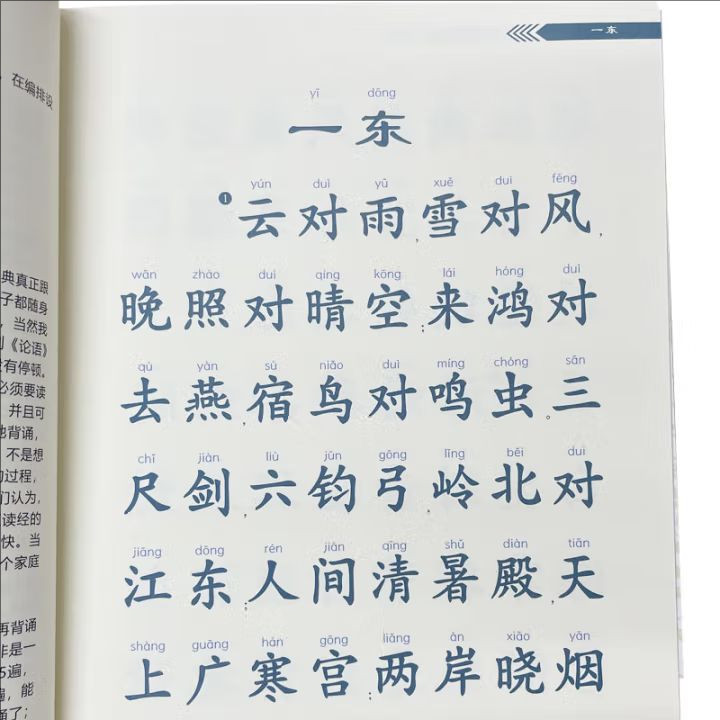 ，在编排设
典真正跟
子都随身
，当然我
《论语》
没有停顿。
必须要读
并且可
他背诵，
不是想
的过程，
们认为，
读经的
快。当
个家庭
再背诵
非是一
5遍，
遍，能
诵了；
一东
yī dōng
一东
yún duì yǔ xuě duì fēng
❶云对雨，雪对风，
wǎn zhào duì qíng kōng lái hóng duì
晚照对晴空；来鸿对
qù yàn sù niǎo duì míng chóng sān
去燕，宿鸟对鸣虫。三
chǐ jiàn liù jūn gōng lǐng běi duì
尺剑，六钧弓，岭北对
jiāng dōng rén jiān qīng shǔ diàn tiān
江东。人间清暑殿，天
shàng guǎng hán gōng liǎng àn xiǎo yān
上广寒宫；两岸晓烟